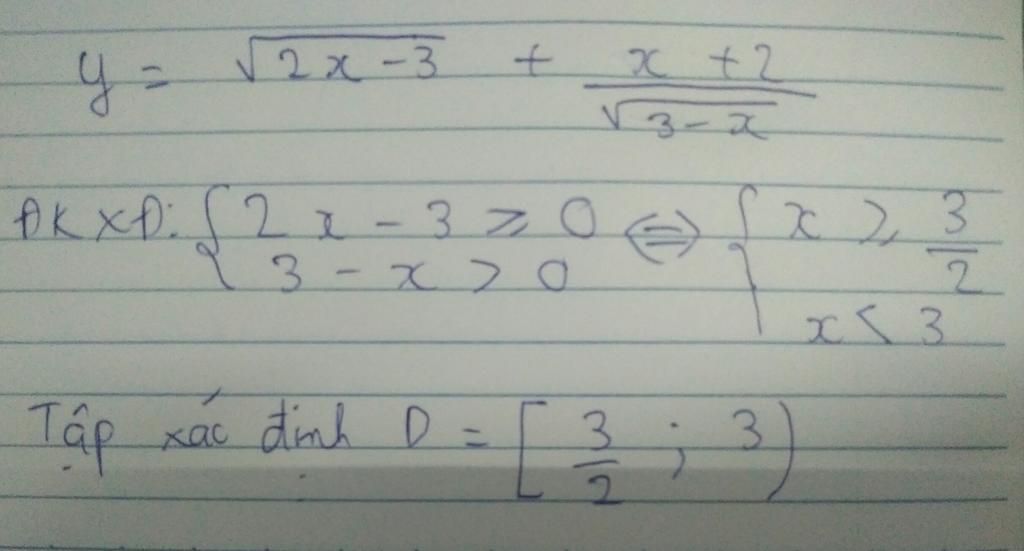 y = √(2x-3) + (x+2)/√(3-x)
ĐKXĐ: { 2x - 3 ≥ 0 ⇔ { x ≥ 3/2
3 - x > 0 x < 3
Tập xác định D = [3/2 ; 3)